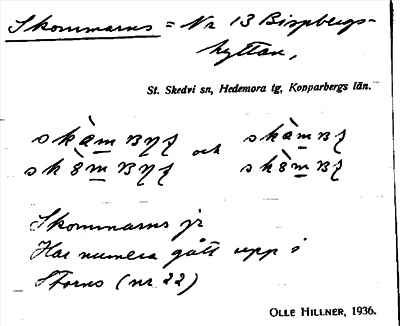 Skommarns = Nr 13 Bispbergs-
hyttan,
St. Skedvi sn, Hedemora tg, Kopparbergs län.
och
Skommarns jr
Har numera gått upp i
Storns (nr 22)
OLLE HILLNER, 1936.